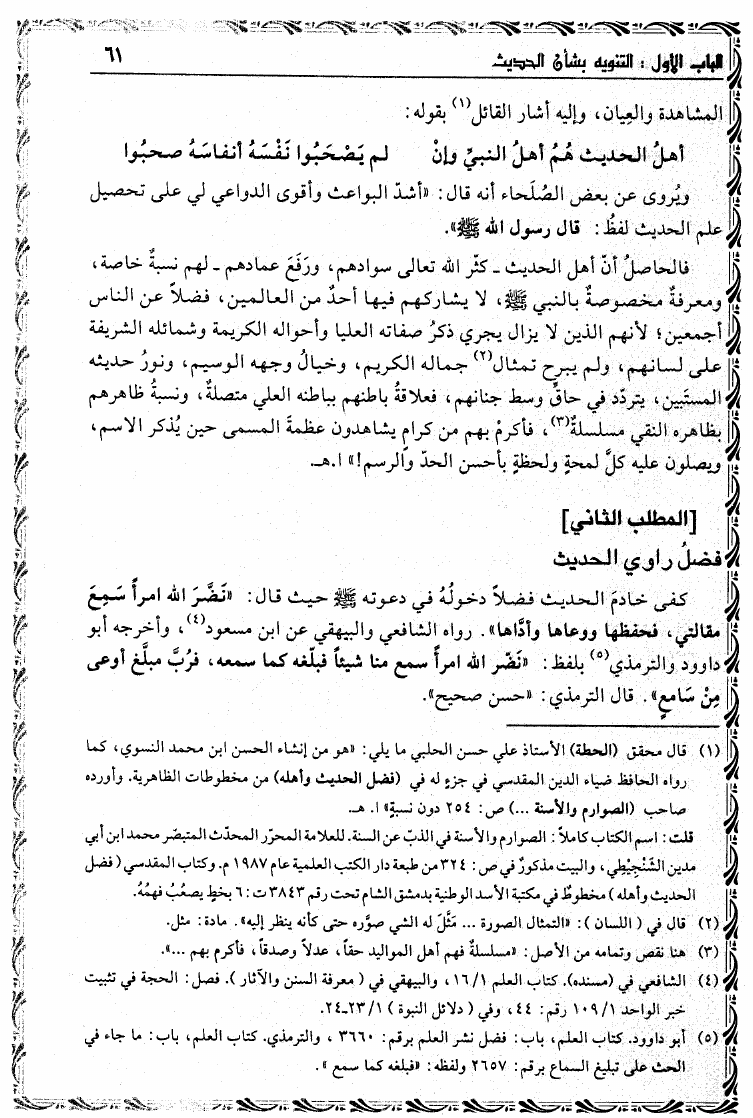 الباب الأول : التنويه بشأن الحديث ٦١
المشاهدة والعِيان، وإليه أشار القائل(١) بقوله:
أهلُ الحديث هُمُ أهلُ النبيِّ وإنْ لم يَصْحَبُوا نَفْسَهُ أنفاسَهُ صحبُوا
ويُروى عن بعض الصُلَحاء أنه قال: «أشدّ البواعث وأقوى الدواعي لي على تحصيل
علم الحديث لفظُ: قال رسول الله ﷺ».
فالحاصلُ أنّ أهل الحديث ـ كثّر الله تعالى سوادهم، ورَفَعَ عمادهم ـ لهم نسبةٌ خاصة،
ومعرفةٌ مخصوصةٌ بالنبي ﷺ، لا يشاركهم فيها أحدٌ من العالمين، فضلاً عن الناس
أجمعين؛ لأنهم الذين لا يزال يجري ذكرُ صفاته العليا وأحواله الكريمة وشمائله الشريفة
على لسانهم، ولم يبرح تمثال(٢) جماله الكريم، وخيالُ وجهه الوسيم، ونورُ حديثه
المستَبين، يتردّد في حاقِّ وسط جنانهم، فعلاقةُ باطنهم بباطنه العلي متصلةٌ، ونسبةُ ظاهرهم
بظاهره النقي مسلسلةٌ(٣)، فأكرمْ بهم من كرامٍ يشاهدون عظمةَ المسمى حين يُذكر الاسم،
ويصلون عليه كلَّ لمحةٍ ولحظةٍ بأحسن الحدّ والرسم!» ا.هـ.
[المطلب الثاني]
فضلُ راوي الحديث
كفى خادمَ الحديث فضلاً دخولُهُ في دعوته ﷺ حيث قال: «نَضَّرَ الله امرأ سَمِعَ
مقالتي، فحفظها ووعاها وأدَّاها». رواه الشافعي والبيهقي عن ابن مسعود(٤)، وأخرجه أبو
داوود والترمذي(٥) بلفظ: «نَضّر الله امرأً سمع منا شيئاً فبلّغه كما سمعه، فرُبَّ مبلَّغ أوعى
مِنْ سَامِعٍ». قال الترمذي: «حسن صحيح».
(١) قال محقق (الحطة) الأستاذ علي حسن الحلبي ما يلي: «هو من إنشاء الحسن ابن محمد النسوي، كما
رواه الحافظ ضياء الدين المقدسي في جزءٍ له في (فضل الحديث وأهله) من مخطوطات الظاهرية. وأورده
صاحب (الصوارم والأسنة ...) ص: ٢٥٤ دون نسبةٍ» ا. هـ.
قلت: اسم الكتاب كاملاً: الصوارم والأسنة في الذبّ عن السنة. للعلامة المحرّر المحدّث المتبصّر محمد ابن أبي
مدين الشَنْجِيْطِي، والبيت مذكورٌ في ص: ٣٢٤ من طبعة دار الكتب العلمية عام ١٩٨٧ م. وكتاب المقدسي (فضل
الحديث وأهله) مخطوطٌ في مكتبة الأسد الوطنية بدمشق الشام تحت رقم ٣٨٤٣ ت: ٦ بخطٍ يصعُبُ فهمُهُ.
(٢) قال في (اللسان): «التمثال الصورة ... مَثَّلَ له الشي صوَّره حتى كأنه ينظر إليه». مادة: مثل.
(٣) هنا نقص وتمامه من الأصل: «مسلسلةٌ فهم أهل المواليد حقاً، عدلاً وصدقاً، فأكرم بهم ...».
(٤) الشافعي في (مسنده). كتاب العلم ١٦/١، والبيهقي في (معرفة السنن والآثار). فصل: الحجة في تثبيت
خبر الواحد ١٠٩/١ رقم: ٤٤، وفي (دلائل النبوة) ٢٣/١-٢٤.
(٥) أبو داوود. كتاب العلم، باب: فضل نشر العلم برقم: ٣٦٦٠ ، والترمذي. كتاب العلم، باب: ما جاء في
الحث على تبليغ السماع برقم: ٢٦٥٧ ولفظه: «فبلغه كما سمع».